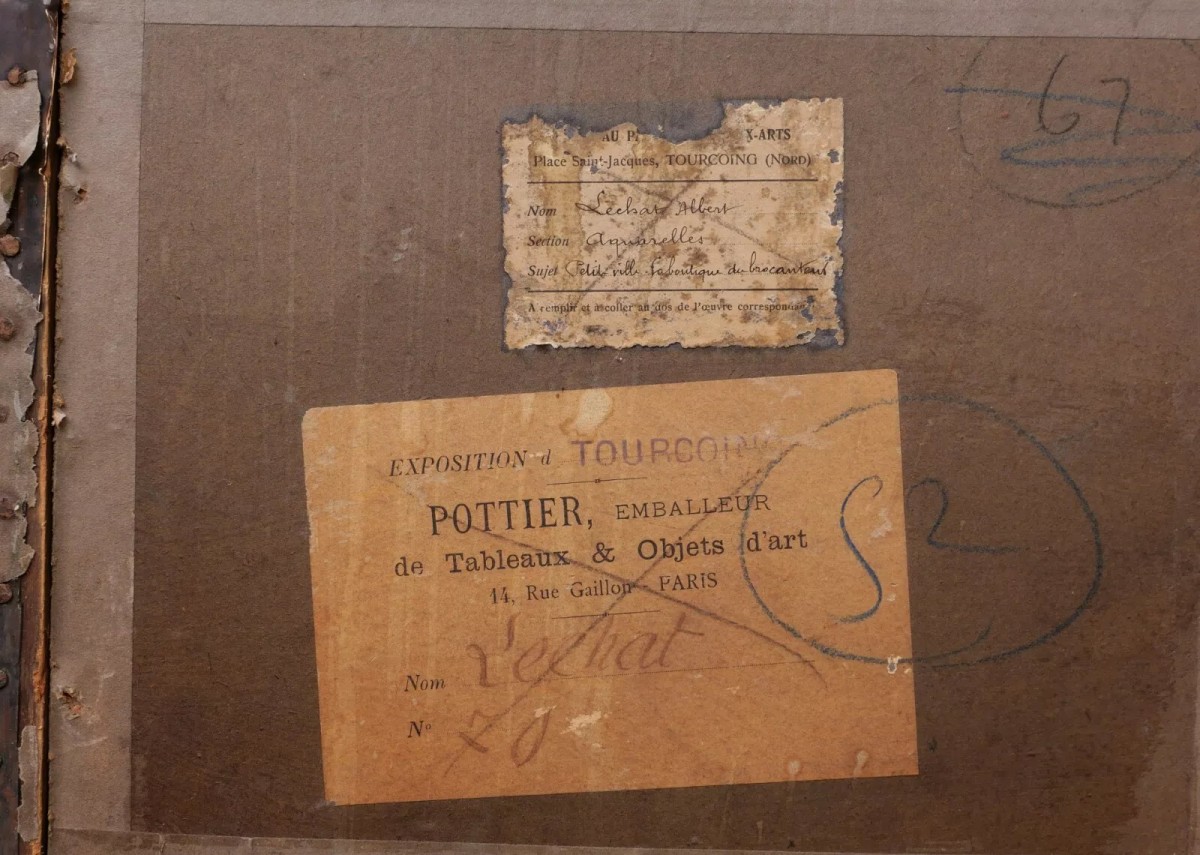 67
AU P X-ARTS
Place Saint-Jacques, TOURCOING (NORD)
Nom Lechat Albert
Section Aquarelles
Sujet Petit ville La boutique du brocanteur
A remplir et à coller au dos de l'œuvre correspondante
EXPOSITION d TOURCOING
POTTIER, EMBALLEUR
de Tableaux & Objets d'art
14, Rue Gaillon - PARIS
52
Nom Lechat
N° 70